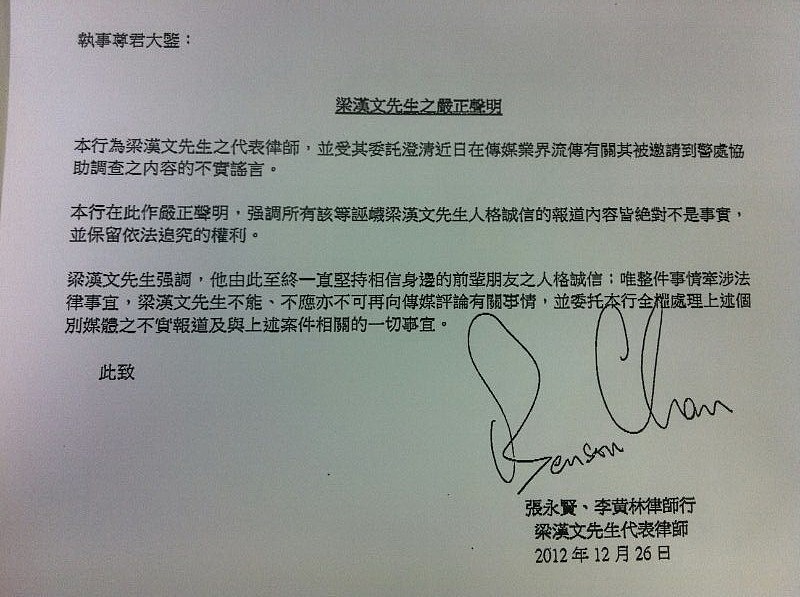 執事尊君大鑒：
梁漢文先生之嚴正聲明
本行為梁漢文先生之代表律師，並受其委託澄清近日在傳媒業界流傳有關其被邀請到警處協
助調查之內容的不實謠言。
本行在此作嚴正聲明，强調所有該等誣衊梁漢文先生人格誠信的報道內容皆絕對不是事實，
並保留依法追究的權利。
梁漢文先生强調，他由此至終一直堅持相信身邊的前輩朋友之人格誠信；唯整件事情牽涉法
律事宜，梁漢文先生不能、不應亦不可再向傳媒評論有關事情，並委托本行全權處理上述個
別媒體之不實報道及與上述案件相關的一切事宜。
此致
Benson Chan
張永賢、李黃林律師行
梁漢文先生代表律師
2012 年 12 月 26 日